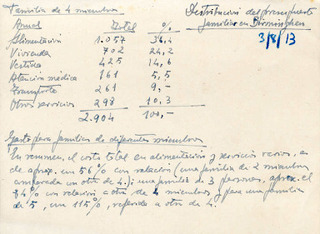 Familia de 4 miembros
Distribución del presupuesto
familiar en Birmingham
3/8/13
Anual Total %
Alimentación 1.057 36,4
Vivienda 702 24,2
Vestido 425 14,6
Atención médica 161 5,5
Transporte 261 9,-
Otros servicios 298 10,3
2.904 100,-
Gasto para familias de diferentes miembros
En resumen, el costo total en alimentación y servicios varios, es
de aprox. un 56% con relación (una familia de 2 miembros
comparada con otra de 4); una familia de 3 personas, aprox. el
84% con relación a otra de 4 miembros y para una familia
de 5, un 115%, referida a otra de 4.